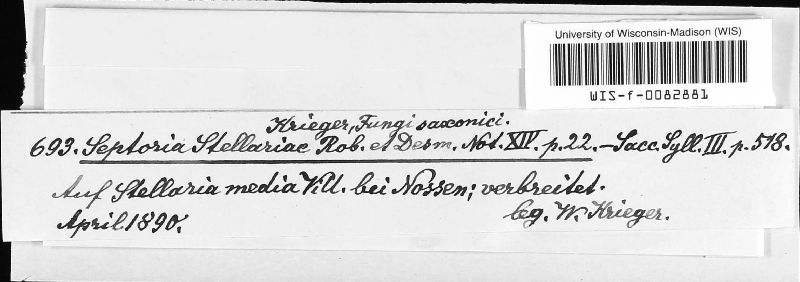 University of Wisconsin-Madison (WIS)
WIS-f-0082881
Krieger, Fungi saxonici.
693. Septoria Stellariae Rob. et Desm. Not. XIV. p. 22. – Sacc. Syll. III. p. 518.
Auf Stellaria media Vill. bei Nossen; verbreitet.
April 1890.
leg. W. Krieger.